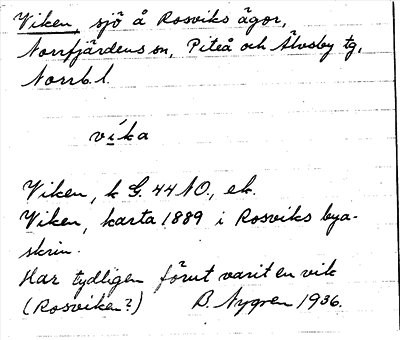 Viken, sjö å Rosviks ägor,
Norrfjärdens sn, Piteå och Älvsby tg,
Norrb. l.
víka
Viken, k G. 44 NO., ek.
Viken, karta 1889 i Rosviks bya-
skrin.
Har tydligen förut varit en vik
(Rosviken?) B. Nygren 1936.